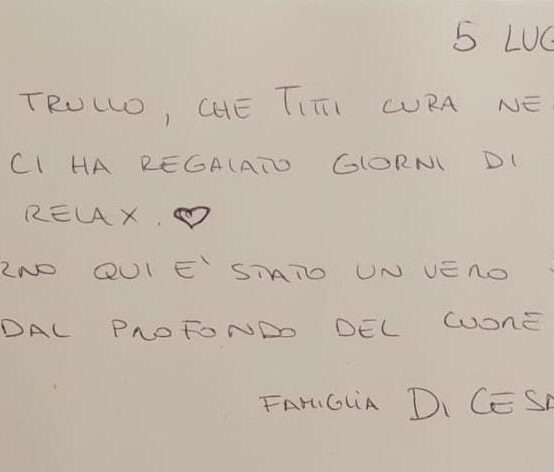 5 LUG
TRULLO, CHE TITTI CURA NE
CI HA REGALATO GIORNI DI
RELAX. ♡
RNO QUI E' STATO UN VERO
DAL PROFONDO DEL CUORE
FAMIGLIA DI CESA